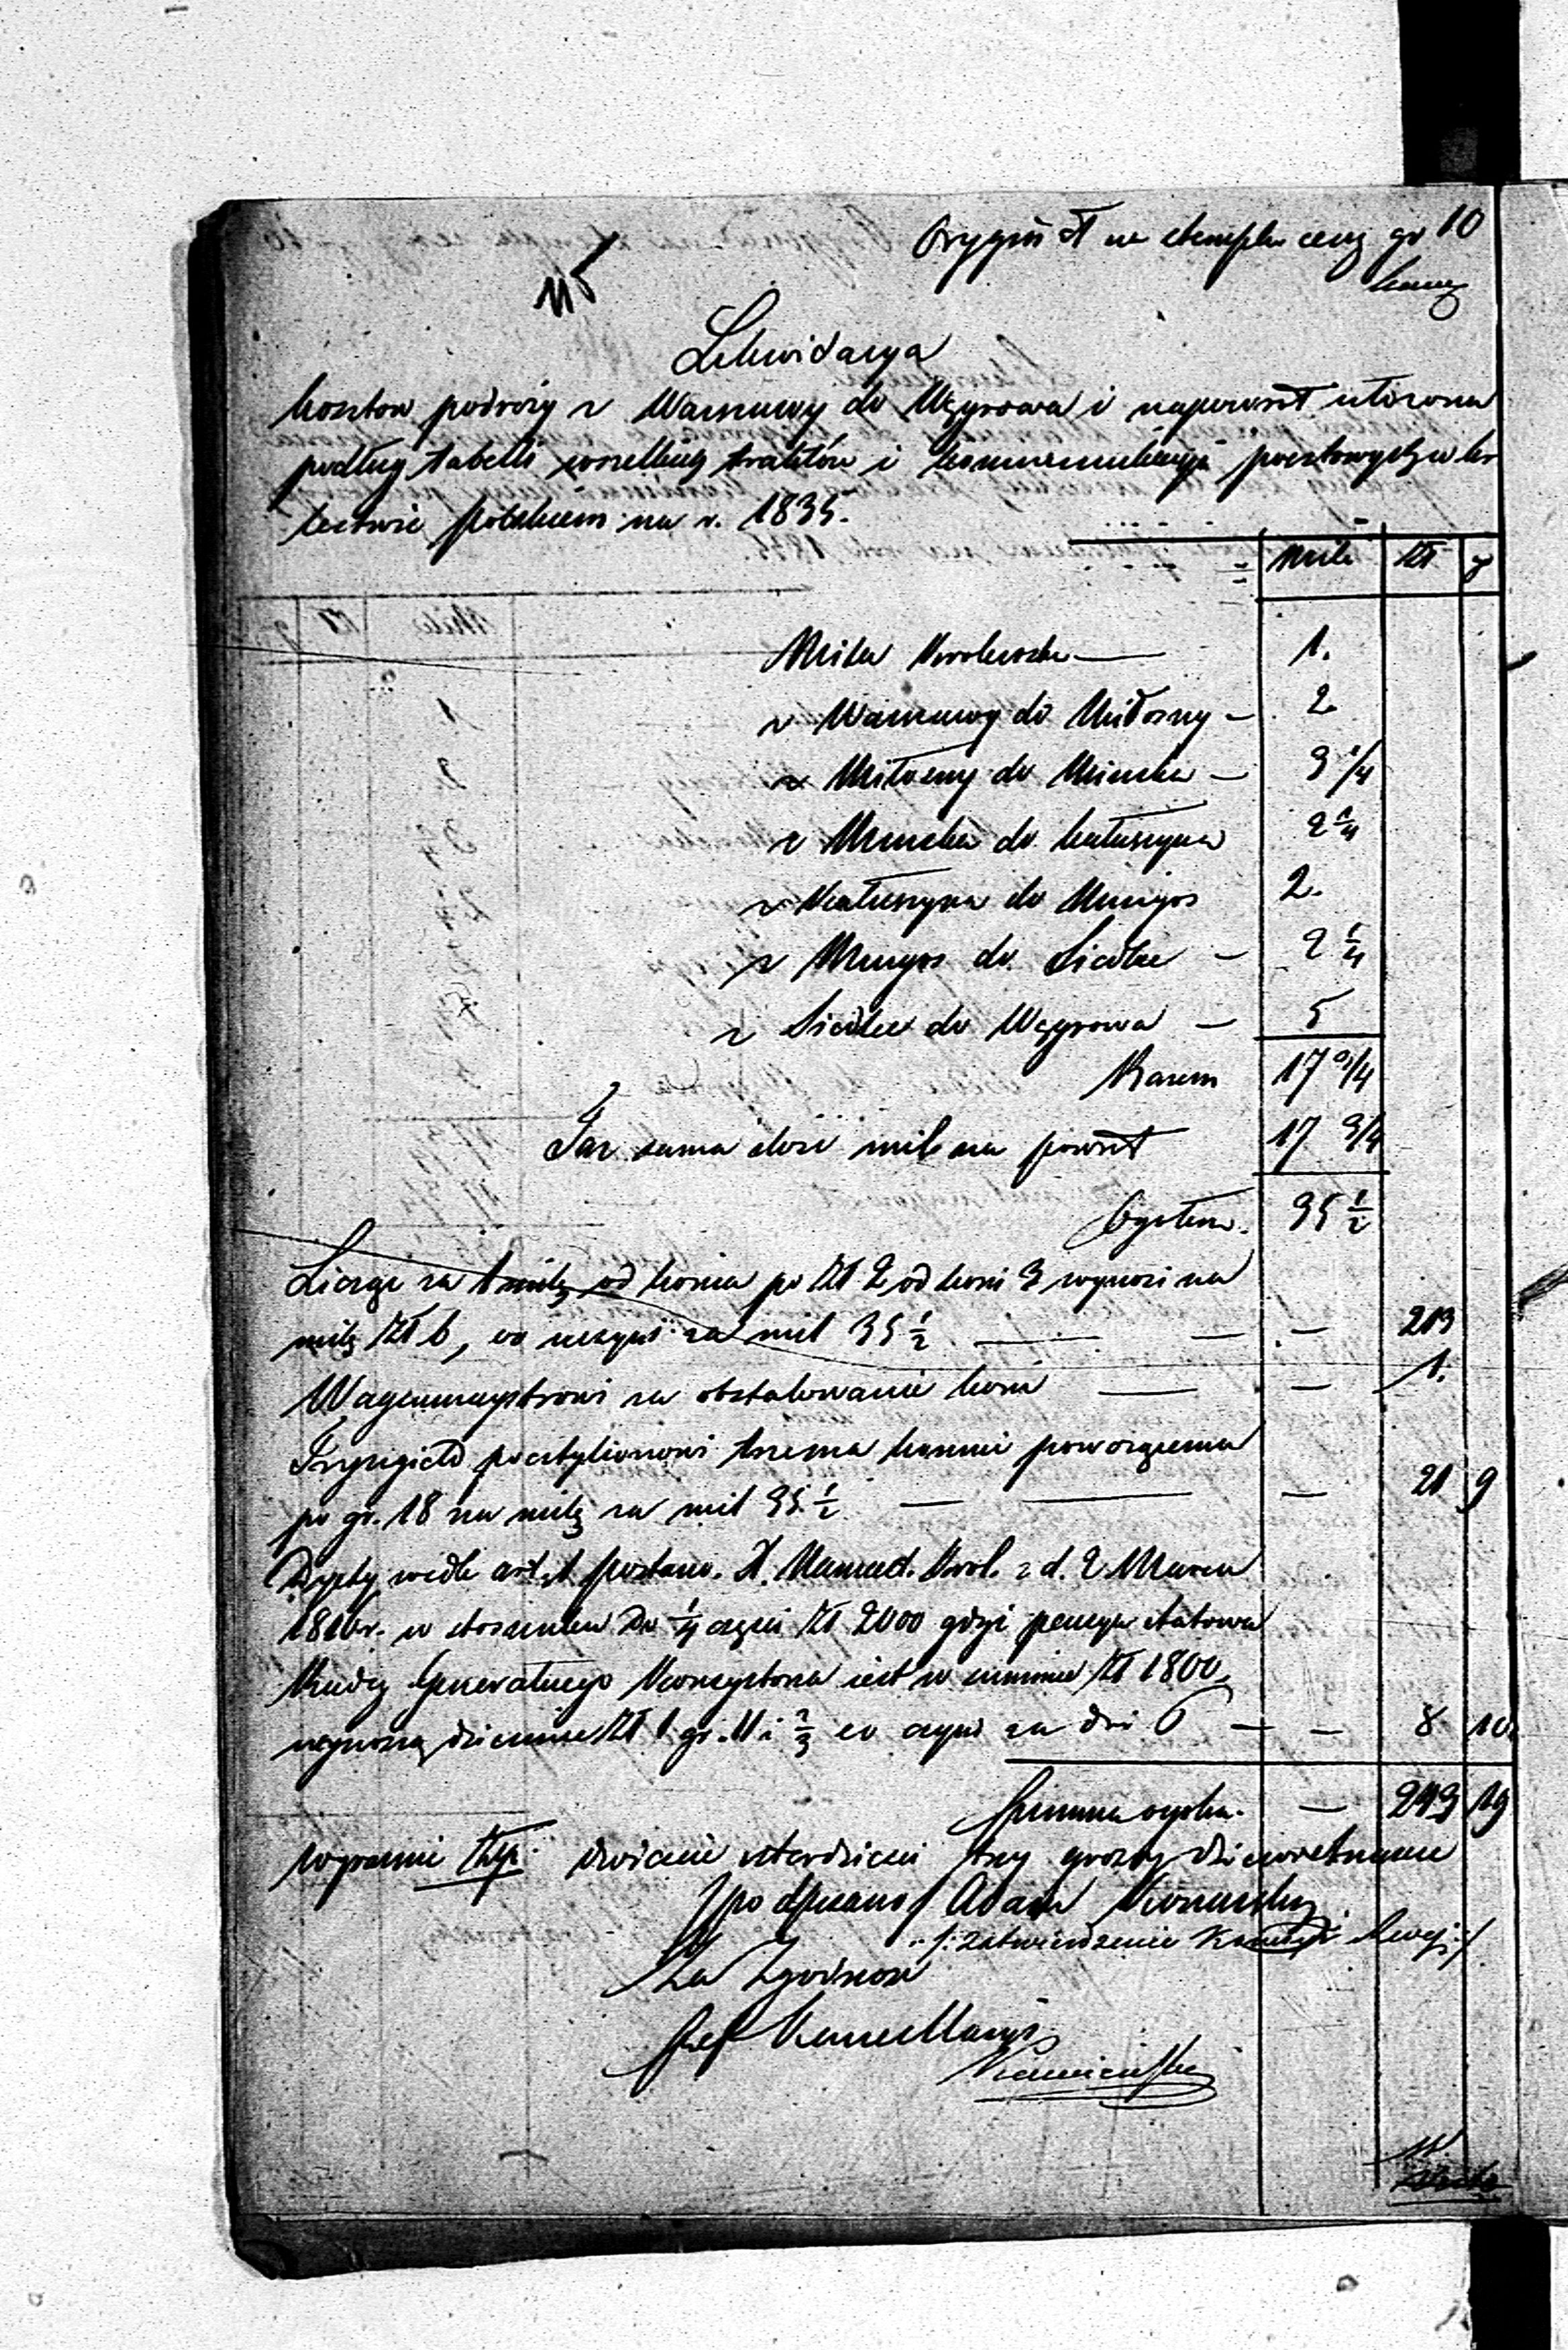 Orygin ał na stemplu ceny gr 10
Likwidacya
kosztów podróży z Warszawy do Węgrowa i napowrót ułożona
podług tabelli wszelkich traktów i kommunikacyi pocztowych w kr
lestwie polskiem na r. 1835.
Mile Złł g
Mila Królewska — 1.
z Warszawy do Miłosny — 2
z Miłosny do Minska — 3 1/4
z Minska do Kałuszyna 2 1/4
z Kałuszyna do Mingos 2.
z Mingos do Siedlec — 2 1/4
z Siedlec do Węgrowa — 5
Razem 17 3/4
Taż sama ilość mil na powrót 17 3/4
Ogółem 35 1/2
Licząc za 1 milę od konia po Złł 2 od koni 3 wynosi na
milę Złł 6, co uczyni za mil 35 1/2 — — — 213
Wagenmaystrowi za obstalowanie koni — — 1.
Tryngield pocztylionowi trzema końmi powożącemu
po gr. 18 na milę za mil 35 1/2 — — — 21 9
Dyety wedle art. 1 postano. X. Namiest. Król. z d. 2 Marca
1816 r. w stosunku do 1/4 części Złł 2000 gdyż pensya etatowa
wynoszą dziennie Złł 1 gr. 11 i 2/3 co czyni za dni 6 — — 8 10
Summa ogólna — 243 19
wyraźnie Złp. dwieście czterdzieści trzy groszy dziewiętnaście
/podpisano/ Adam
Za Zgodność
Szef Kancellaryi